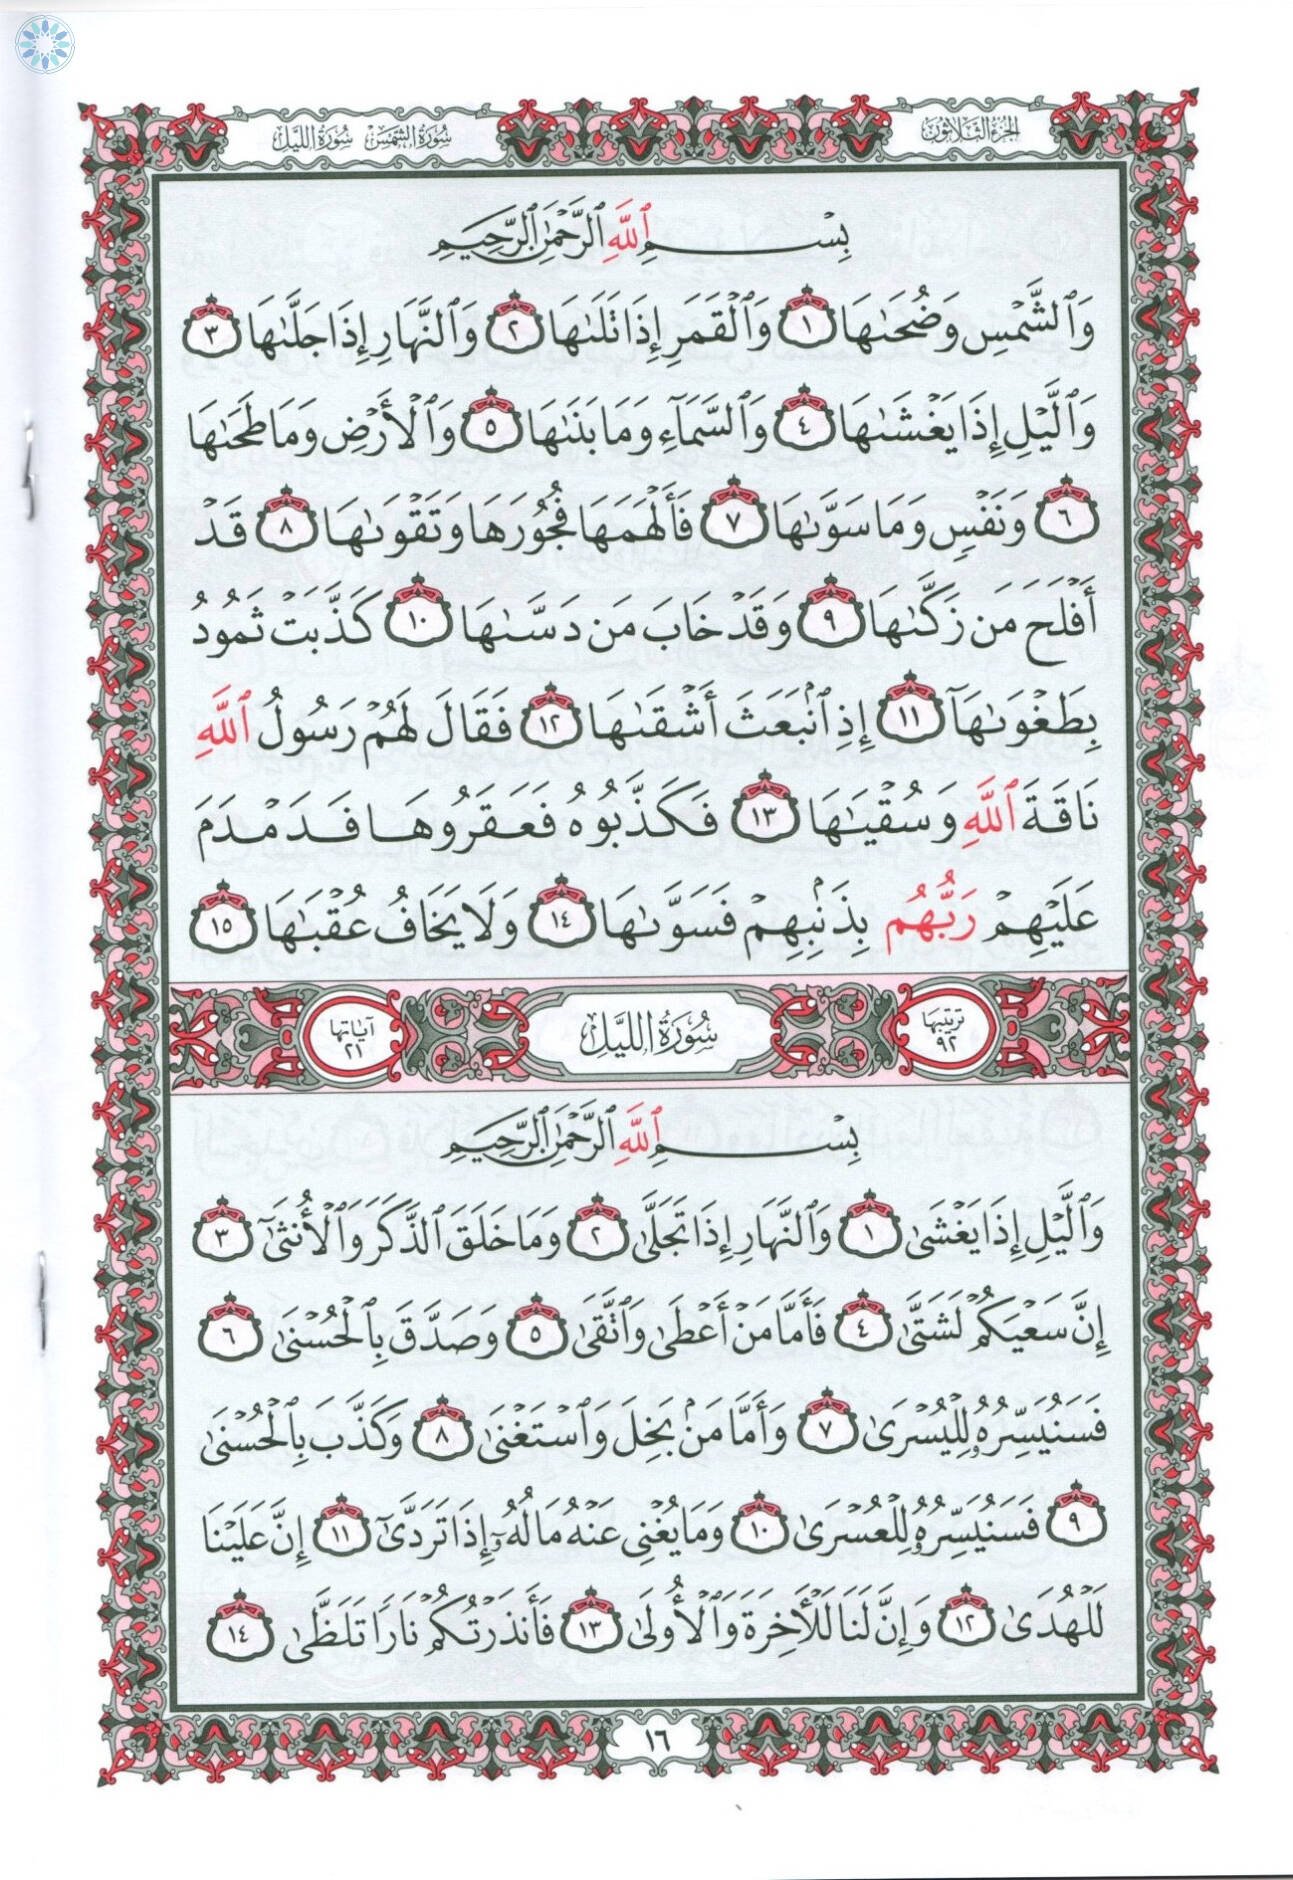 الجزء الثلاثون
سورة الشمس سورة الليل
بِسْمِ ٱللَّهِ ٱلرَّحْمَٰنِ ٱلرَّحِيمِ
وَٱلشَّمْسِ وَضُحَىٰهَا ١ وَٱلْقَمَرِ إِذَا تَلَىٰهَا ٢ وَٱلنَّهَارِ إِذَا جَلَّىٰهَا ٣
وَٱلَّيْلِ إِذَا يَغْشَىٰهَا ٤ وَٱلسَّمَآءِ وَمَا بَنَىٰهَا ٥ وَٱلْأَرْضِ وَمَا طَحَىٰهَا
٦ وَنَفْسٍ وَمَا سَوَّىٰهَا ٧ فَأَلْهَمَهَا فُجُورَهَا وَتَقْوَىٰهَا ٨ قَدْ
أَفْلَحَ مَن زَكَّىٰهَا ٩ وَقَدْ خَابَ مَن دَسَّىٰهَا ١٠ كَذَّبَتْ ثَمُودُ
بِطَغْوَىٰهَآ ١١ إِذِ ٱنۢبَعَثَ أَشْقَىٰهَا ١٢ فَقَالَ لَهُمْ رَسُولُ ٱللَّهِ
نَاقَةَ ٱللَّهِ وَسُقْيَٰهَا ١٣ فَكَذَّبُوهُ فَعَقَرُوهَا فَدَمْدَمَ
عَلَيْهِمْ رَبُّهُم بِذَنۢبِهِمْ فَسَوَّىٰهَا ١٤ وَلَا يَخَافُ عُقْبَٰهَا ١٥
ترتيبها ٩٢ سُورَةُ اللَّيْلِ آياتها ٢١
بِسْمِ ٱللَّهِ ٱلرَّحْمَٰنِ ٱلرَّحِيمِ
وَٱلَّيْلِ إِذَا يَغْشَىٰ ١ وَٱلنَّهَارِ إِذَا تَجَلَّىٰ ٢ وَمَا خَلَقَ ٱلذَّكَرَ وَٱلْأُنثَىٰٓ ٣
إِنَّ سَعْيَكُمْ لَشَتَّىٰ ٤ فَأَمَّا مَنْ أَعْطَىٰ وَٱتَّقَىٰ ٥ وَصَدَّقَ بِٱلْحُسْنَىٰ ٦
فَسَنُيَسِّرُهُۥ لِلْيُسْرَىٰ ٧ وَأَمَّا مَنۢ بَخِلَ وَٱسْتَغْنَىٰ ٨ وَكَذَّبَ بِٱلْحُسْنَىٰ
٩ فَسَنُيَسِّرُهُۥ لِلْعُسْرَىٰ ١٠ وَمَا يُغْنِى عَنْهُ مَالُهُۥٓ إِذَا تَرَدَّىٰٓ ١١ إِنَّ عَلَيْنَا
لَلْهُدَىٰ ١٢ وَإِنَّ لَنَا لَلْـَٔاخِرَةَ وَٱلْأُولَىٰ ١٣ فَأَنذَرْتُكُمْ نَارًا تَلَظَّىٰ ١٤
١٦